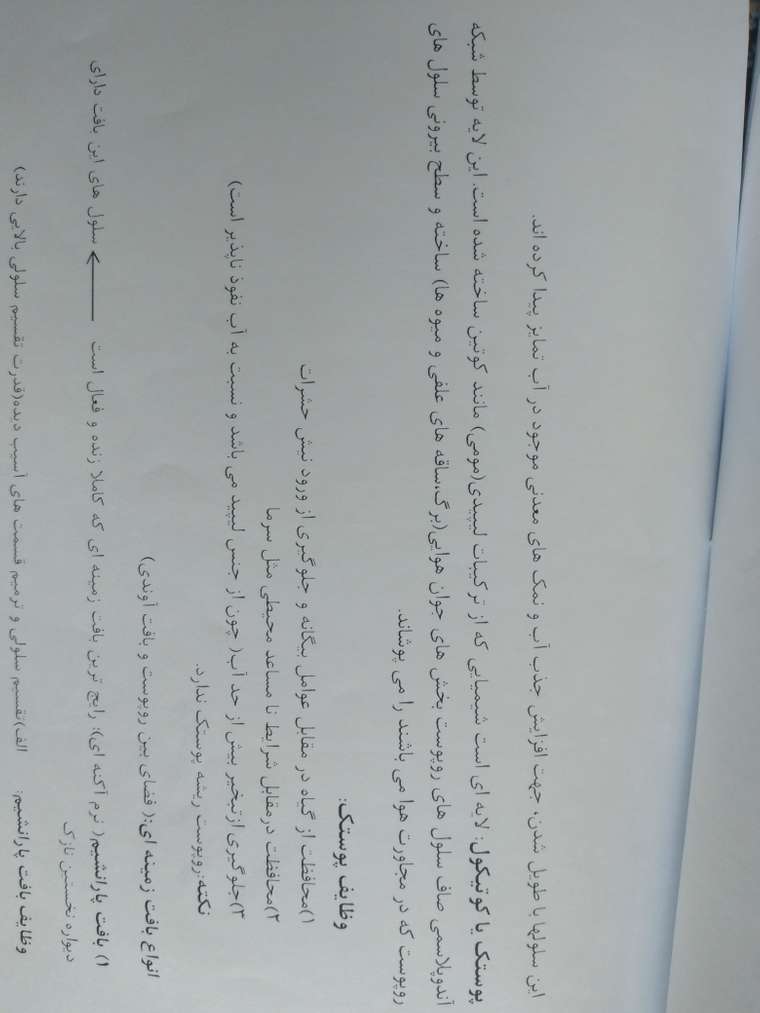 این سلولها با طویل شدن، جهت افزایش جذب آب و نمک های معدنی موجود در آب تمایز پیدا کرده اند.
پوستک یا کوتیکول: لایه ای است شیمیایی که از ترکیبات لیپیدی(مومی) مانند کوتین ساخته شده است. این لایه توسط شبکه
آندوپلاسمی صاف سلول های روپوست بخش های جوان هوایی(برگ،ساقه های علفی و میوه ها) ساخته و سطح بیرونی سلول های
روپوست که در مجاورت هوا می باشند را می پوشاند.
وظایف پوستک:
۱)محافظت از گیاه در مقابل عوامل بیگانه و جلوگیری از ورود نیش حشرات
۲)محافظت درمقابل شرایط نا مساعد محیطی مثل سرما
۳)جلوگیری ازتبخیر بیش از حد آب( چون از جنس لیپید می باشد و نسبت به آب نفوذ ناپذیر است)
نکته:روپوست ریشه پوستک ندارد.
انواع بافت زمینه ای:( فضای بین روپوست و بافت آوندی)
۱) بافت پارانشیم( نرم آکنه ای): رایج ترین بافت زمینه ای که کاملا زنده و فعال است ← سلول های این بافت دارای
دیواره نخستین نازک
وظایف بافت پارانشیم: الف)تقسیم سلولی و ترمیم قسمت های آسیب دیده(قدرت تقسیم سلولی بالایی دارند)